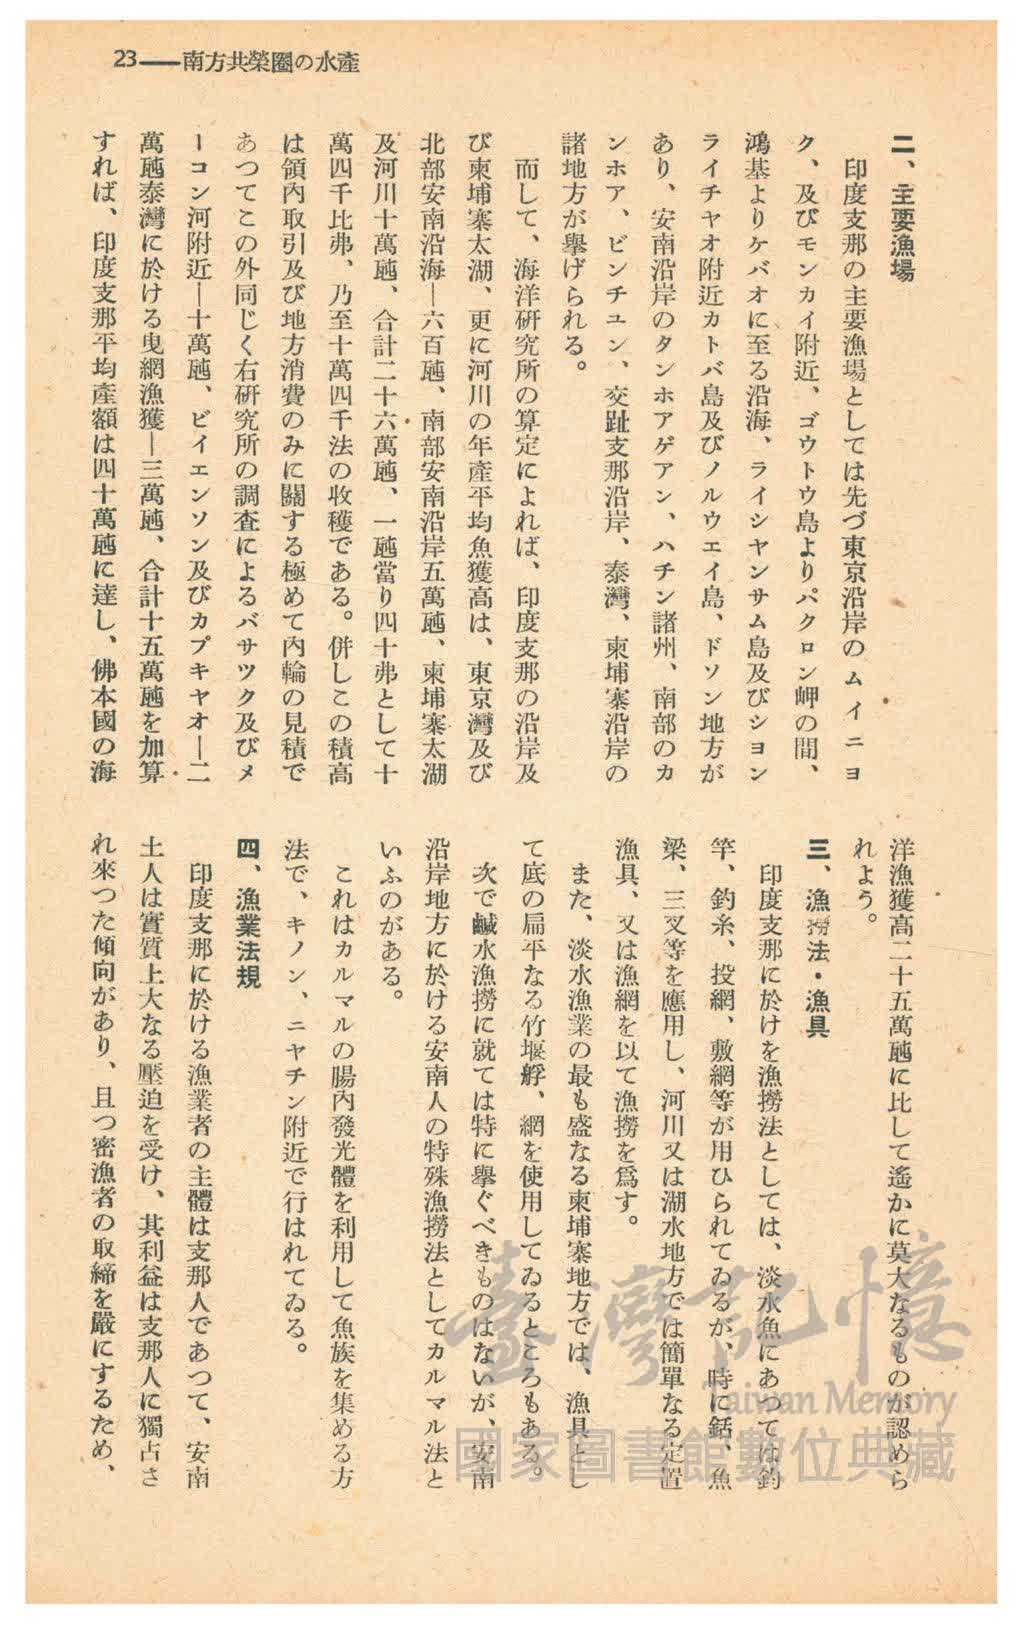 23——南方共榮圈の水產
二、主要漁場
印度支那の主要漁場としては先づ東京沿岸のムイニヨ
ク、及びモンカイ附近、ゴウトウ島よりパクロン岬の間、
鴻基よりケバオに至る沿海、ライシヤンサム島及びシヨン
ライチヤオ附近カトバ島及びノルウエイ島、ドソン地方が
あり、安南沿岸のタンホアゲアン、ハチン諸州、南部のカ
ンホア、ビンチユン、交趾支那沿岸、泰灣、柬埔寨沿岸の
諸地方が擧げられる。
而して、海洋研究所の算定によれば、印度支那の沿岸及
び柬埔寨太湖、更に河川の年產平均魚獲高は、東京灣及び
北部安南沿海—六百瓲、南部安南沿岸五萬瓲、柬埔寨太湖
及河川十萬瓲、合計二十六萬瓲、一瓲當り四十弗として十
萬四千比弗、乃至十萬四千法の收穫である。併しこの積高
は領內取引及び地方消費のみに關する極めて內輪の見積で
あつてこの外同じく右硏究所の調査によるバサツク及びメ
ーコン河附近—十萬瓲、ビイエンソン及びカプキヤオ—二
萬瓲泰灣に於ける曳網漁獲—三萬瓲、合計十五萬瓲を加算
すれば、印度支那平均產額は四十萬瓲に達し、佛本國の海
洋漁獲高二十五萬瓲に比して遙かに莫大なるものが認めら
れよう。
三、漁撈法・漁具
印度支那に於けを漁撈法としては、淡水魚にあつては釣
竿、釣糸、投網、敷網等が用ひられてゐるが、時に銛、魚
梁、三叉等を應用し、河川又は湖水地方では簡單なる定置
漁具、又は漁網を以て漁撈を爲す。
また、淡水漁業の最も盛なる柬埔寨地方では、漁具とし
て底の扁平なる竹堰艀、網を使用してゐるところもある。
次で鹹水漁撈に就ては特に擧ぐべきものはないが、安南
沿岸地方に於ける安南人の特殊漁撈法としてカルマル法と
いふのがある。
これはカルマルの腸內發光體を利用して魚族を集める方
法で、キノン、ニヤチン附近で行はれてゐる。
四、漁業法規
印度支那に於ける漁業者の主體は支那人であつて、安南
土人は實質上大なる壓迫を受け、其利益は支那人に獨占さ
れ來つた傾向があり、且つ密漁者の取締を嚴にするため、
臺灣記憶
Taiwan Memory
國家圖書館數位典藏